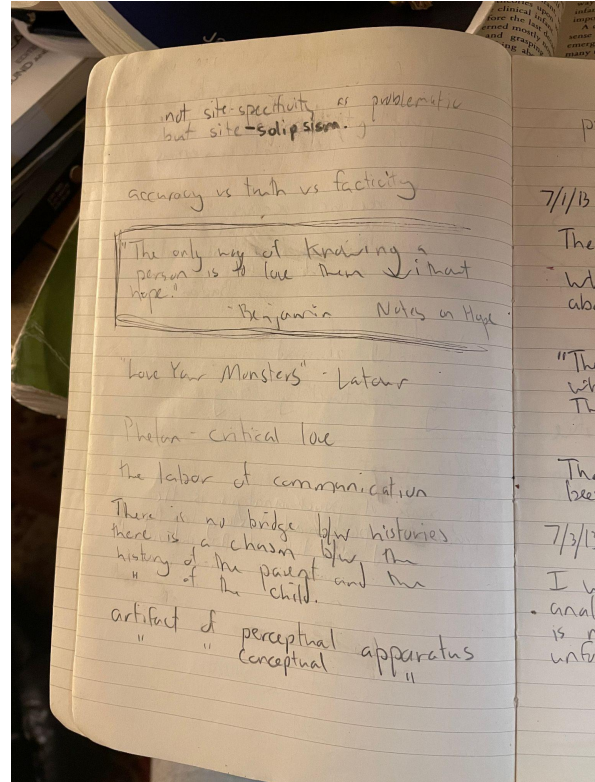 not site-specificity as problematic
but site-solipsism.
accuracy vs truth vs facticity
"The only way of knowing a
person is to love them without
hope."
-Benjamin Notes on Hope
"Love Your Monsters" - Latour
Phelan - critical love
the labor of communication
There is no bridge b/w histories
there is a chasm b/w the
history of the parent and the
" of the child.
artifact of perceptual apparatus
" " conceptual "
7/1/13
The
abo
"Th
Th
Tha
bee
7/3/13
I w
anal
is n
unfo
clinical infan
fore the last
erned mostly
and grasping
ng ab
infan
impo
sense
emerg
many